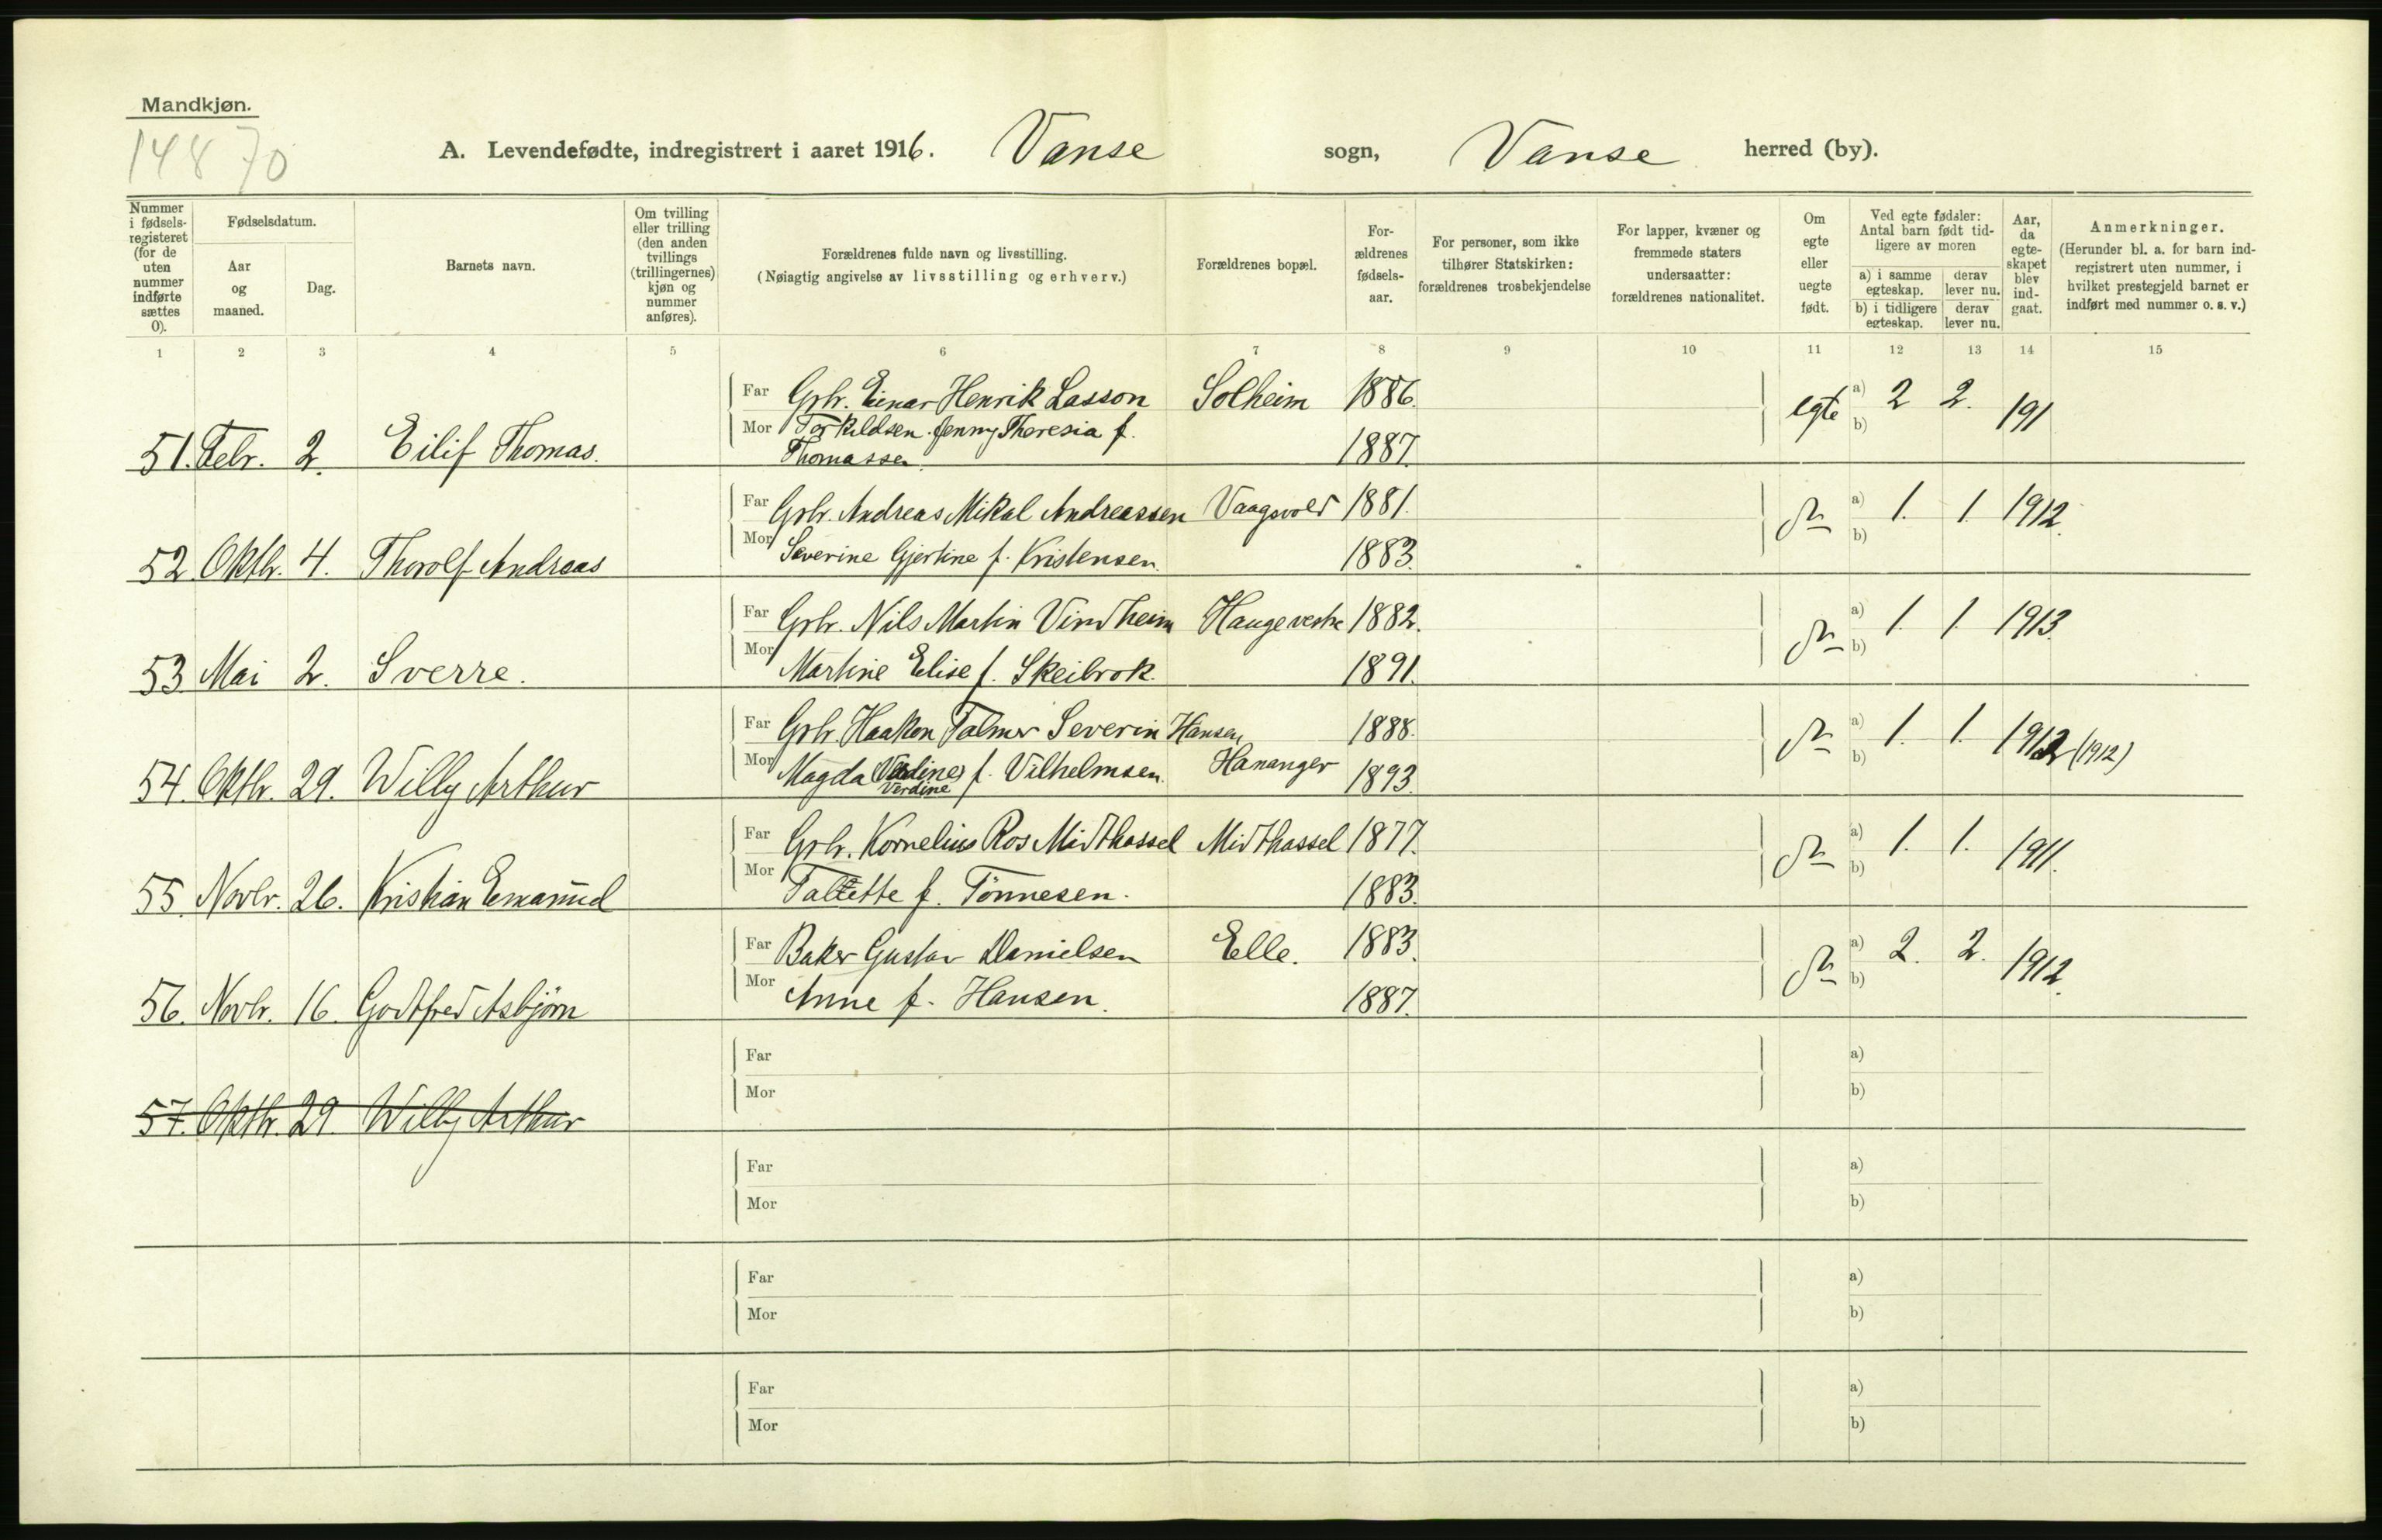 Mandkjøn.
14870
A. Levendefødte, indregistrert i aaret 1916. Vanse sogn, Vanse herred (by).
Nummer i fødsels-registeret (for de uten nummer indførte sættes 0).
Fødselsdatum.
Aar og maaned.
Dag.
Barnets navn.
Om tvilling eller trilling (den anden tvillings (trillingernes) kjøn og nummer anføres).
Forældrenes fulde navn og livsstilling.
(Nøiagtig angivelse av livsstilling og erhverv.)
Forældrenes bopæl.
For-ældrenes fødsels-aar.
For personer, som ikke tilhører Statskirken: forældrenes trosbekjendelse
For lapper, kvæner og fremmede staters undersaatter: forældrenes nationalitet.
Om egte eller uegte født.
Ved egte fødsler: Antal barn født tid-ligere av moren
a) i samme egteskap. derav lever nu.
b) i tidligere egteskap. derav lever nu.
Aar, da egte-skapet blev ind-gaat.
Anmerkninger.
(Herunder bl. a. for barn ind-registrert uten nummer, i hvilket prestegjeld barnet er indført med nummer o. s. v.)
1 2 3 4 5 6 7 8 9 10 11 12 13 14 15
Far Grbr. Einar Henrik Lasson Solheim 1886. egte a) 2 2. 191
Mor Torkildsen. Jenny Theresia f. b)
51. Febr. 2. Eilif Thomas. Thomassen 1887.
Far Grbr. Andreas Mikal Andreassen Vaagsvold 1881. a) 1. 1. 1912.
Mor Severine Gjertine f. Kristensen. 1883. b)
52 Oktbr. 4. Thorolf Andreas
Far Grbr. Nils Martin Vindheim Hauge vestre 1882. a) 1. 1. 1913.
Mor Martine Elise f. Skeibrok. 1891. b)
53 Mai 2. Sverre.
Far Grbr. Haakon Talmer Severin Hansen 1888. a) 1. 1. 1912 (1912)
Mor Magda Verdine f. Vilhelmsen. Hananger 1893. b)
54. Oktbr. 29. Willy Arthur
Far Grbr. Kornelius Ros Midthassel Midthassel 1877. a) 1. 1. 1911.
Mor Talette f. Tönnesen. 1883. b)
55. Novbr. 26. Kristian Emanuel
Far Baker Gustav Danielsen Elle. 1883. a) 2. 2. 1912.
Mor Anne f. Hansen. 1887. b)
56. Novbr. 16. Godtfred Asbjörn
Far a)
Mor b)
57. Oktbr. 29. Willy Arthur
Far a)
Mor b)
Far a)
Mor b)
Far a)
Mor b)